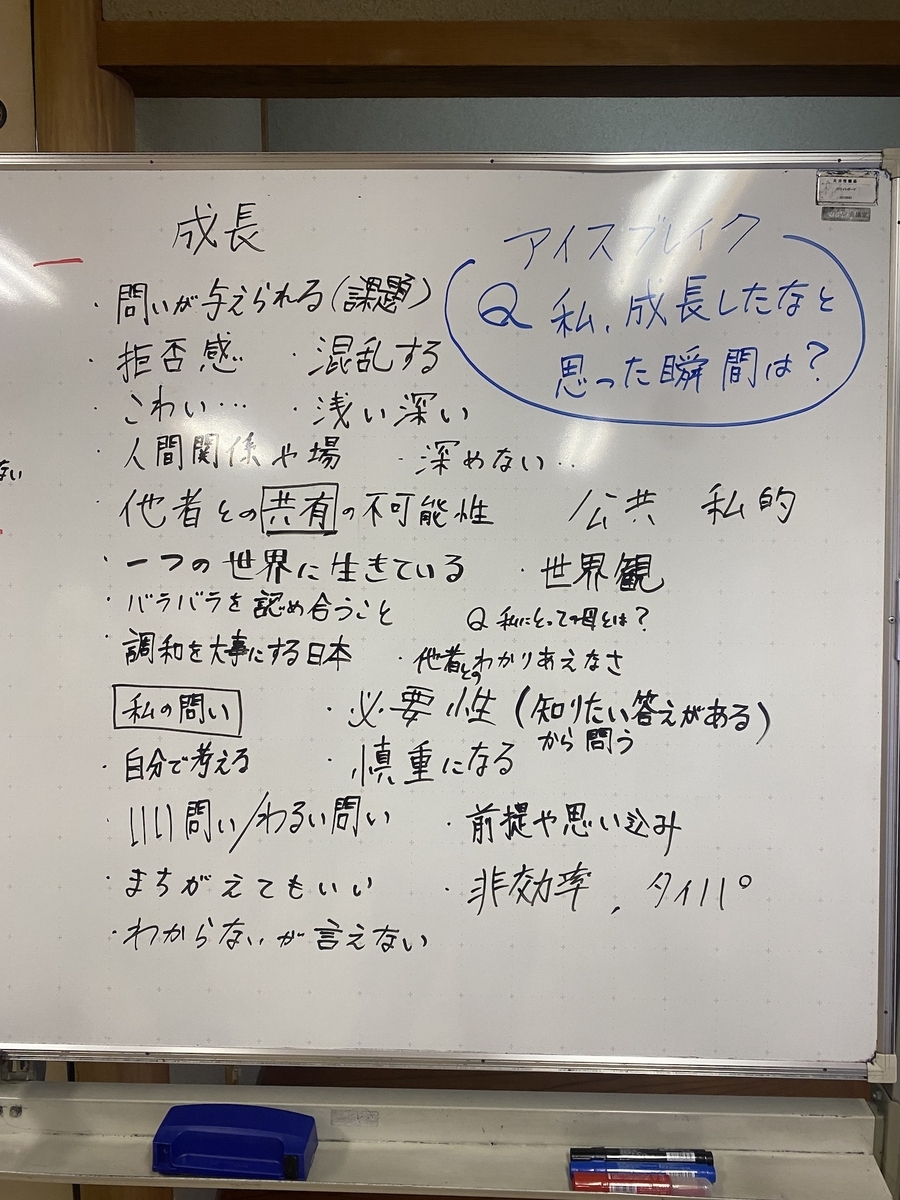 成長
アイスブレイク
Q 私、成長したなと
思った瞬間は?
・問いが与えられる(課題)
・拒否感 ・混乱する
・こわい… ・浅い深い
・人間関係や場 ・深めない…
他者との共有の不可能性 公共 私的
・一つの世界に生きている ・世界観
・バラバラを認め合うこと Q 私にとって母とは?
・調和を大事にする日本 ・他者とのわかりあえなさ
私の問い ・必要性(知りたい答えがある)
から問う
・自分で考える ・慎重になる
いい問い/わるい問い ・前提や思い込み
・まちがえてもいい ・非効率、タイパ
・わからないが言えない
ない